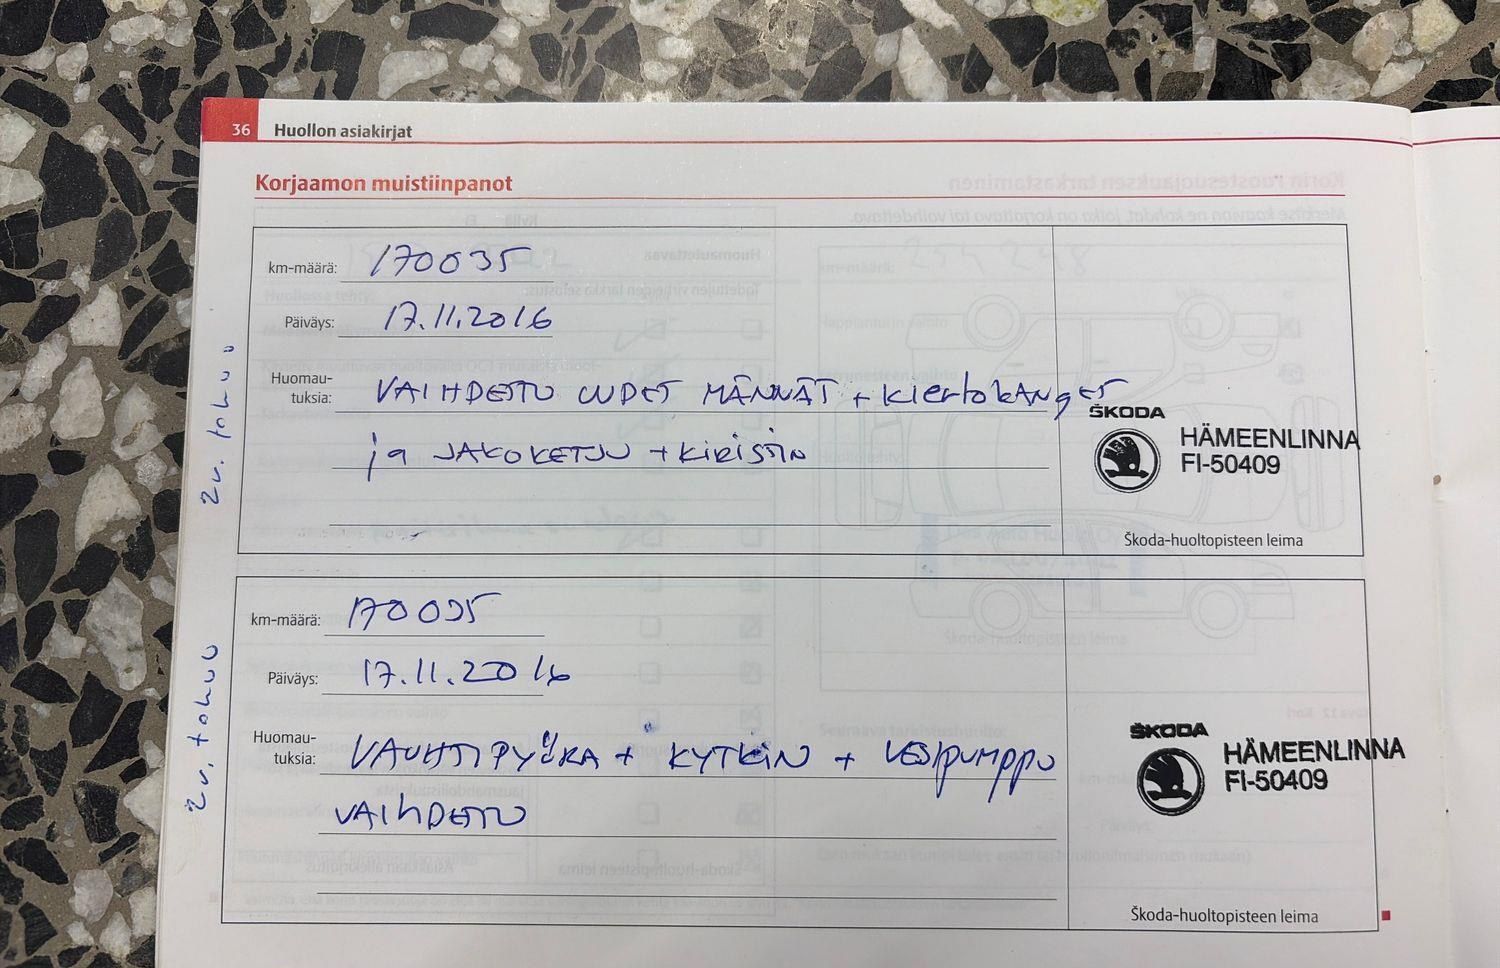 36 Huollon asiakirjat
Korjaamon muistiinpanot
km-määrä: 170035
Päiväys: 17.11.2016
Huomau-
tuksia: VAIHDETTU UUDET MÄNNÄT + kiertokanget
ja JAKOKETJU + KIRISTIN
ŠKODA
HÄMEENLINNA
FI-50409
Škoda-huoltopisteen leima
2v. takuu
km-määrä: 170035
Päiväys: 17.11.2016
Huomau-
tuksia: VAUHTIPYÖRÄ + KYTKIN + VESIPUMPPU
VAIHDETTU
ŠKODA
HÄMEENLINNA
FI-50409
Škoda-huoltopisteen leima
2v. takuu